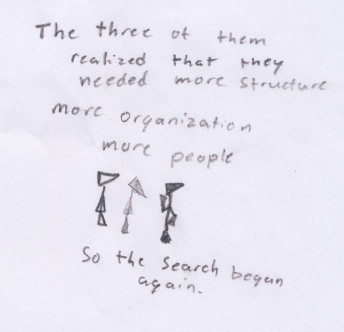 The three of them
realized that they
needed more structure
more organization
more people
So the search began
again.